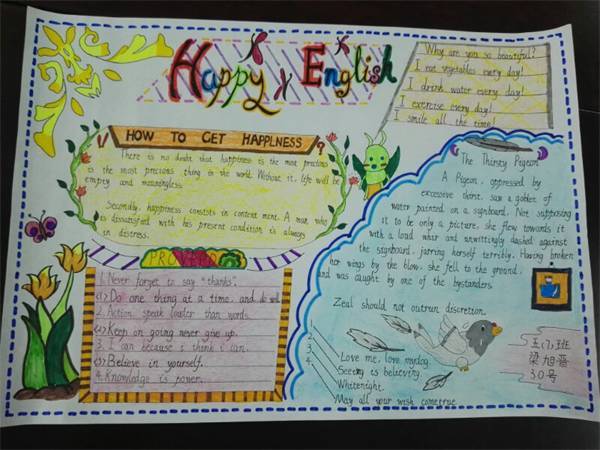 Happy English
Why are you so beautiful?
I eat vegetables every day!
I drink water every day!
I exercise every day!
I smile all the time!
HOW TO GET HAPPLNESS ?
There is no doubt that happiness is the most precious
is the most precious thing in the world. Without it, life will be
empty and meaningless.
Secondly, happiness consists in content ment. A man who
is dissatisfied with his present condition is always
in distress.
PROVERB
1. Never forget to say "thanks".
(1)>Do one thing at a time, and do well.
2. Action speak louder than words.
(2)>Keep on going never give up.
3. I can because i think i can.
(3)>Believe in yourself.
4. Knowledge is power.
The Thirsty Pegeon
A Pigeon, oppressed by
excessive thirst, saw a goblet of
water painted on a signboard. Not supposing
it to be only a picture, she flew towards it
with a loud whir and unwittingly dashed against
the signboard, jarring herself terribly. Having broken
her wings by the blow, she fell to the ground,
and was caught by one of the bystanders.
Zeal should not outrun discretion.
1.
2.
3.
4.
Love me, love mydog.
Seeing is believing.
Whitenight.
May all your wish cometrue.
五(7)班
梁旭
30号